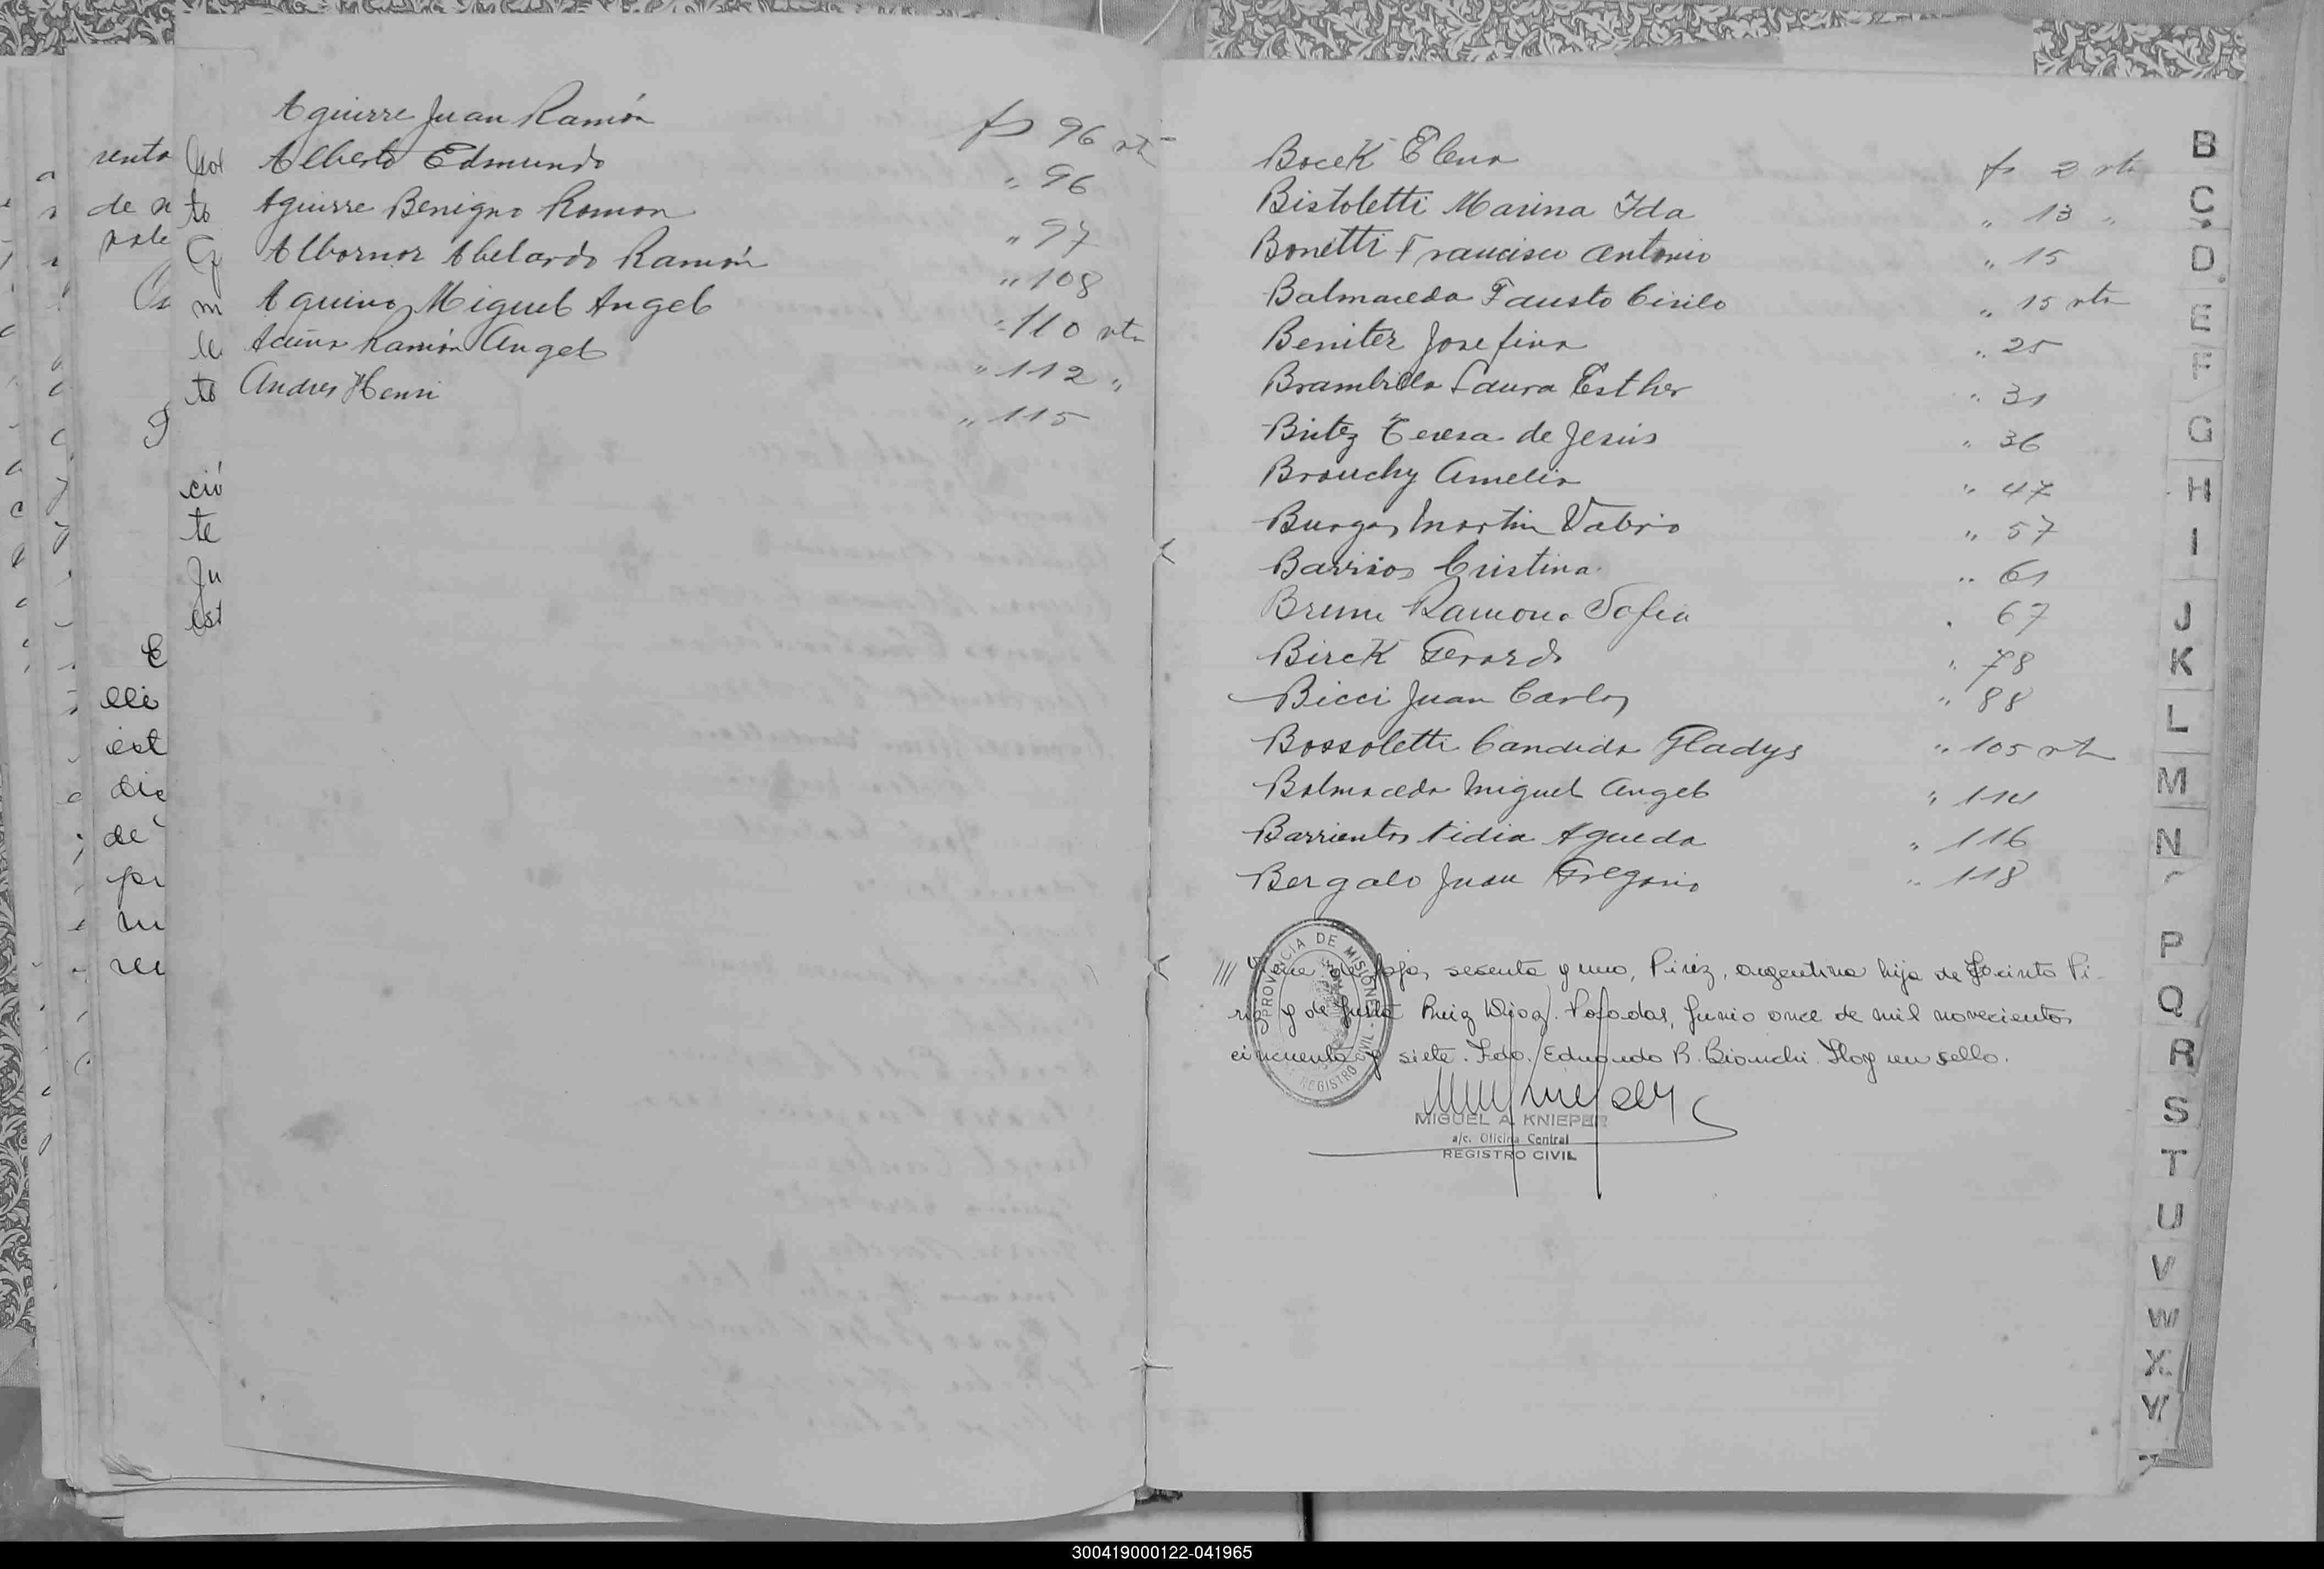 Aguirre Juan Ramón fs 96 vta
Alberto Edmundo " 96
Aguirre Benigno Ramon " 97
Albornoz Abelardo Ramón " 108
Aquino Miguel Angel " 110 vta
Acuña Ramón Angel " 112 "
Andres Henri " 115
renta
de n
Jot
to
m
le
to
ció
te
Ju
est
E
lli
est
die
de
pr
nu
Bocek Elena fs 2 vta
Bistoletti Marina Ida " 13 "
Bonetti Francisco Antonio " 15
Balmaceda Fausto Cirilo " 15 vta
Benitez Josefina " 25
Brambilla Laura Esther " 31
Britez Teresa de Jesús " 36
Brouchy Amelia " 47
Burgos Martin " 57
Barrios Cristina " 61
Ramona Sofia " 67
Birck Gerardo " 78
Bicci Juan Carlos " 88
Bossoletti Candida Gladys " 105 vta
Balmaceda Miguel Angel " 114
Barrientos Nidia Agueda " 116
Bergalo Juan Gregorio " 118
/// Viene de fojas sesenta y uno, Piriz, argentina hija de Jacinto Pi-
riz y de Justa Ruiz Diaz. Posadas, Junio once de mil novecientos
cincuenta y siete. Fdo. Eduardo R. Bianchi. Hay un sello.
PROVINCIA DE MISIONES
REGISTRO CIVIL
MIGUEL A. KNIEPER
a/c. Oficina Central
REGISTRO CIVIL
B
C
D
E
F
G
H
I
J
K
L
M
N
P
Q
R
S
T
U
V
W
X
Y
300419000122-041965